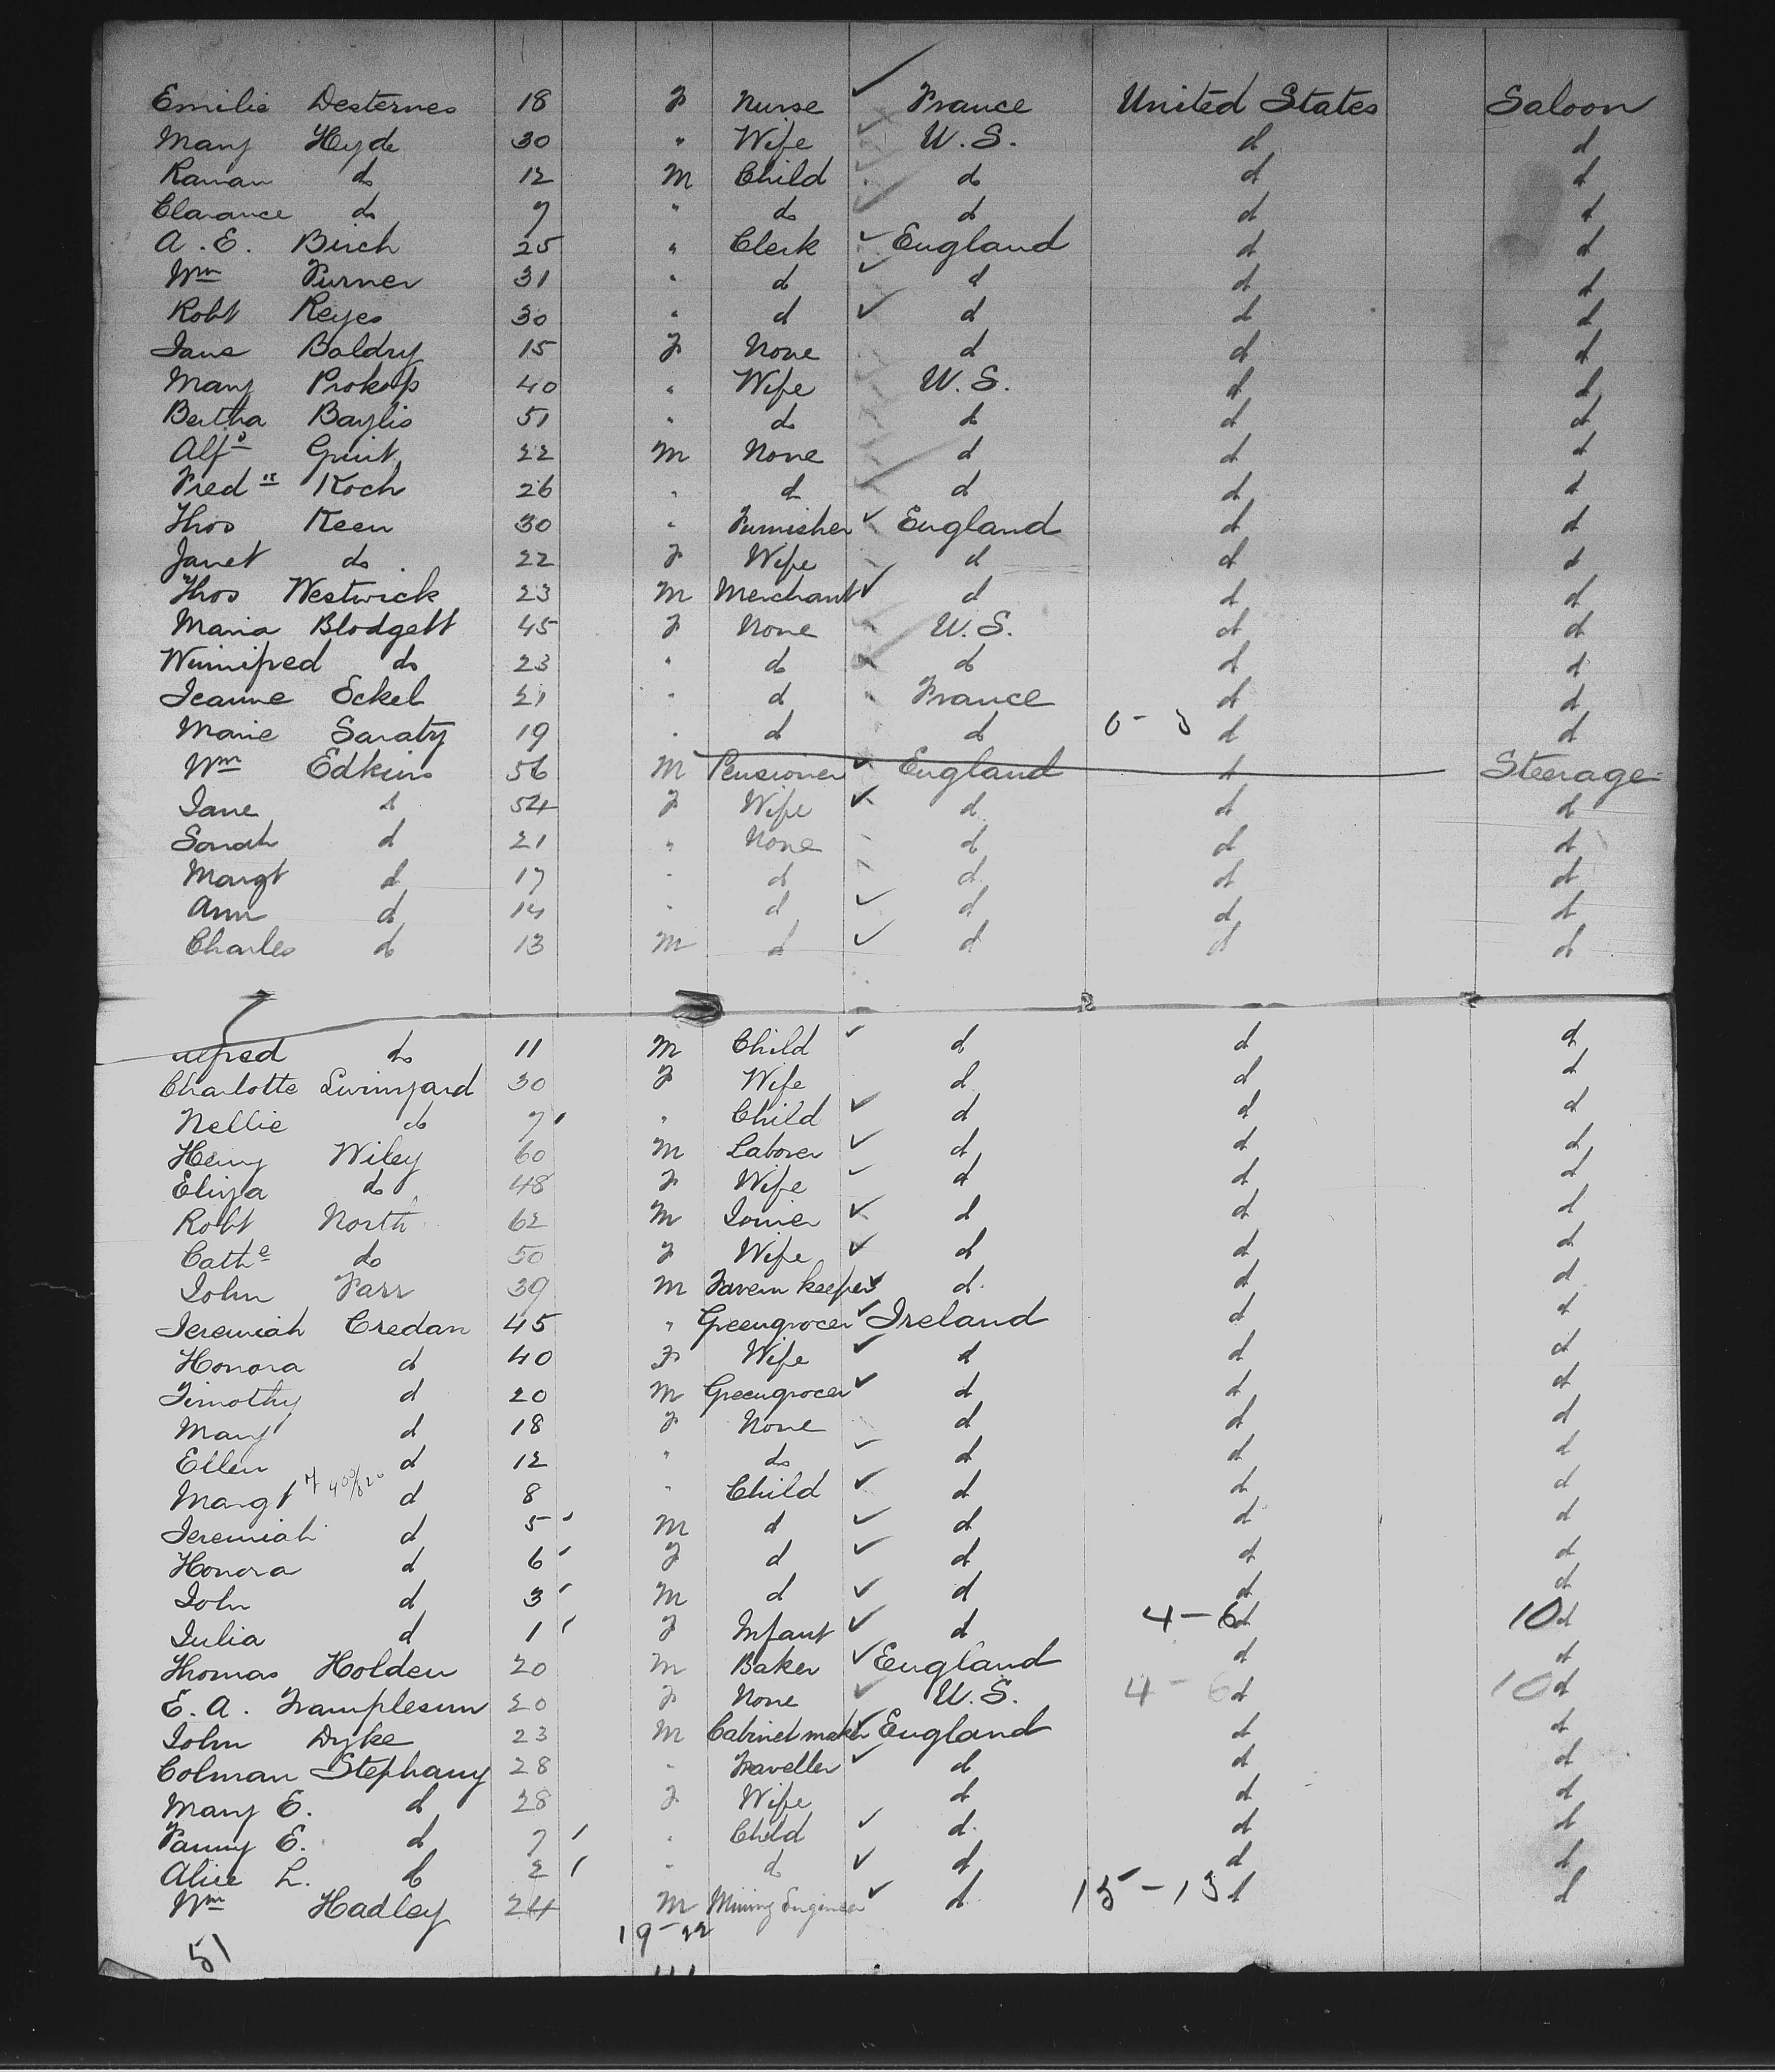 Emilie Desternes 18 F Nurse ✓ France United States Saloon
Mary Hyde 30 " Wife ✓ U.S. d d
Ranan do 12 M Child ✓ do d d
Clarance do 7 " do ✓ d d d
A. E. Birch 25 " Clerk ✓ England d d
Wm Turner 31 " d ✓ d d d
Robt Keyes 30 " d ✓ d d d
Jane Baldry 15 F None d d d
Mary Prokop 40 " Wife U.S. d d
Bertha Baylis 51 " do d d d
Alfd 22 M None d d d
Fredk Koch 26 " d ✓ d d d
Thos Keen 30 " Furnisher ✓ England d d
Janet do 22 F Wife d d d
Thos Westwick 23 M Merchant ✓ d d d
Maria Blodgett 45 F None ✓ U.S. d d
Winnifred do 23 " d ✓ do d d
Jeanne Eckel 21 " d France d d
Marie Saraty 19 " d d d d
Wm Edkins 56 M Pensioner ✓ England d Steerage
Jane d 54 F Wife ✓ d d d
Sarah d 21 " None d d d
Margt d 17 " d d d d
Ann d 14 " d ✓ d d d
Charles d 13 M d ✓ d d d
Alfred do 11 M Child ✓ d d d
Charlotte Swinyard 30 F Wife d d d
Nellie do 7 " Child ✓ d d d
Henry Wiley 60 M Laborer ✓ d d d
Eliza do 48 F Wife ✓ d d d
Robt North 62 M Joiner ✓ d d d
Cathe do 50 F Wife ✓ d d d
John Farr 39 M Tavern keeper ✓ d d d
Jeremiah Credan 45 " Greengrocer ✓ Ireland d d
Honora d 40 F Wife ✓ d d d
Timothy d 20 M Greengrocer ✓ d d d
Mary d 18 F None d d d
Ellen d 12 " do ✓ d d d
Margt d 8 " Child ✓ d d d
Jeremiah d 5 M d ✓ d d d
Honora d 6 F d ✓ d d d
John d 3 M d ✓ d d d
Julia d 1 F Infant ✓ d 4-6 d 10 d
Thomas Holden 20 M Baker ✓ England d d
E. A. Tramplesun 20 F None ✓ U.S. 4-6 d 10 d
John Dyke 23 M Cabinet maker ✓ England d d
Colman Stephany 28 " Traveller ✓ d d d
Mary E. d 28 F Wife d d d
Fanny E. d 7 " Child ✓ d d d
Alice L. do 2 " d ✓ d d d
Wm Hadley 24 M Mining Engineer ✓ d 15-13 d d
19-22
51